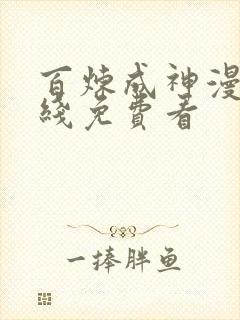 百炼成神漫
綫免費看
一捧胖鱼